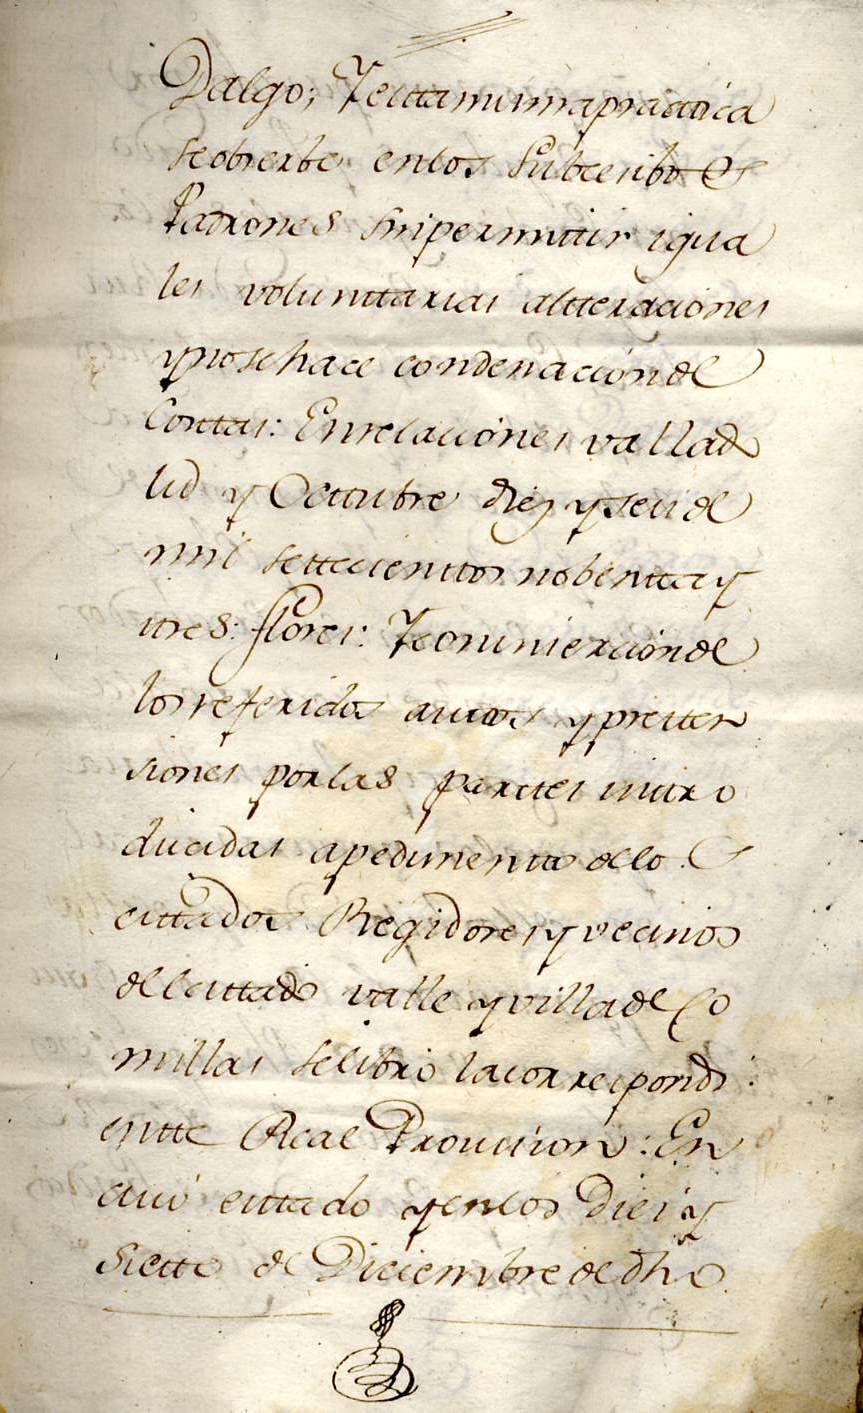 Dalgo; Yestta mismapractica
seobserbe enlos Subcesibos
Padrones sinpermittir igua
les volunttarias altteraciones
ynosehace condenacionde
Costas: Enrelaciones vallado
lid y Octtubre diez yseis de
mil settecienttos nobentta y
ttres: flores: Yconinsercionde
losreferidos auttos ypretten
siones porlas parttes inttro
ducidas apedimentto delos
cittados Regidores y vecinos
delcittado valle yvillade Co
millas selibro lacorrespondi
entte Real Provision: En
cuio esttado yenlos Diez y
siette de Diciembre de dho